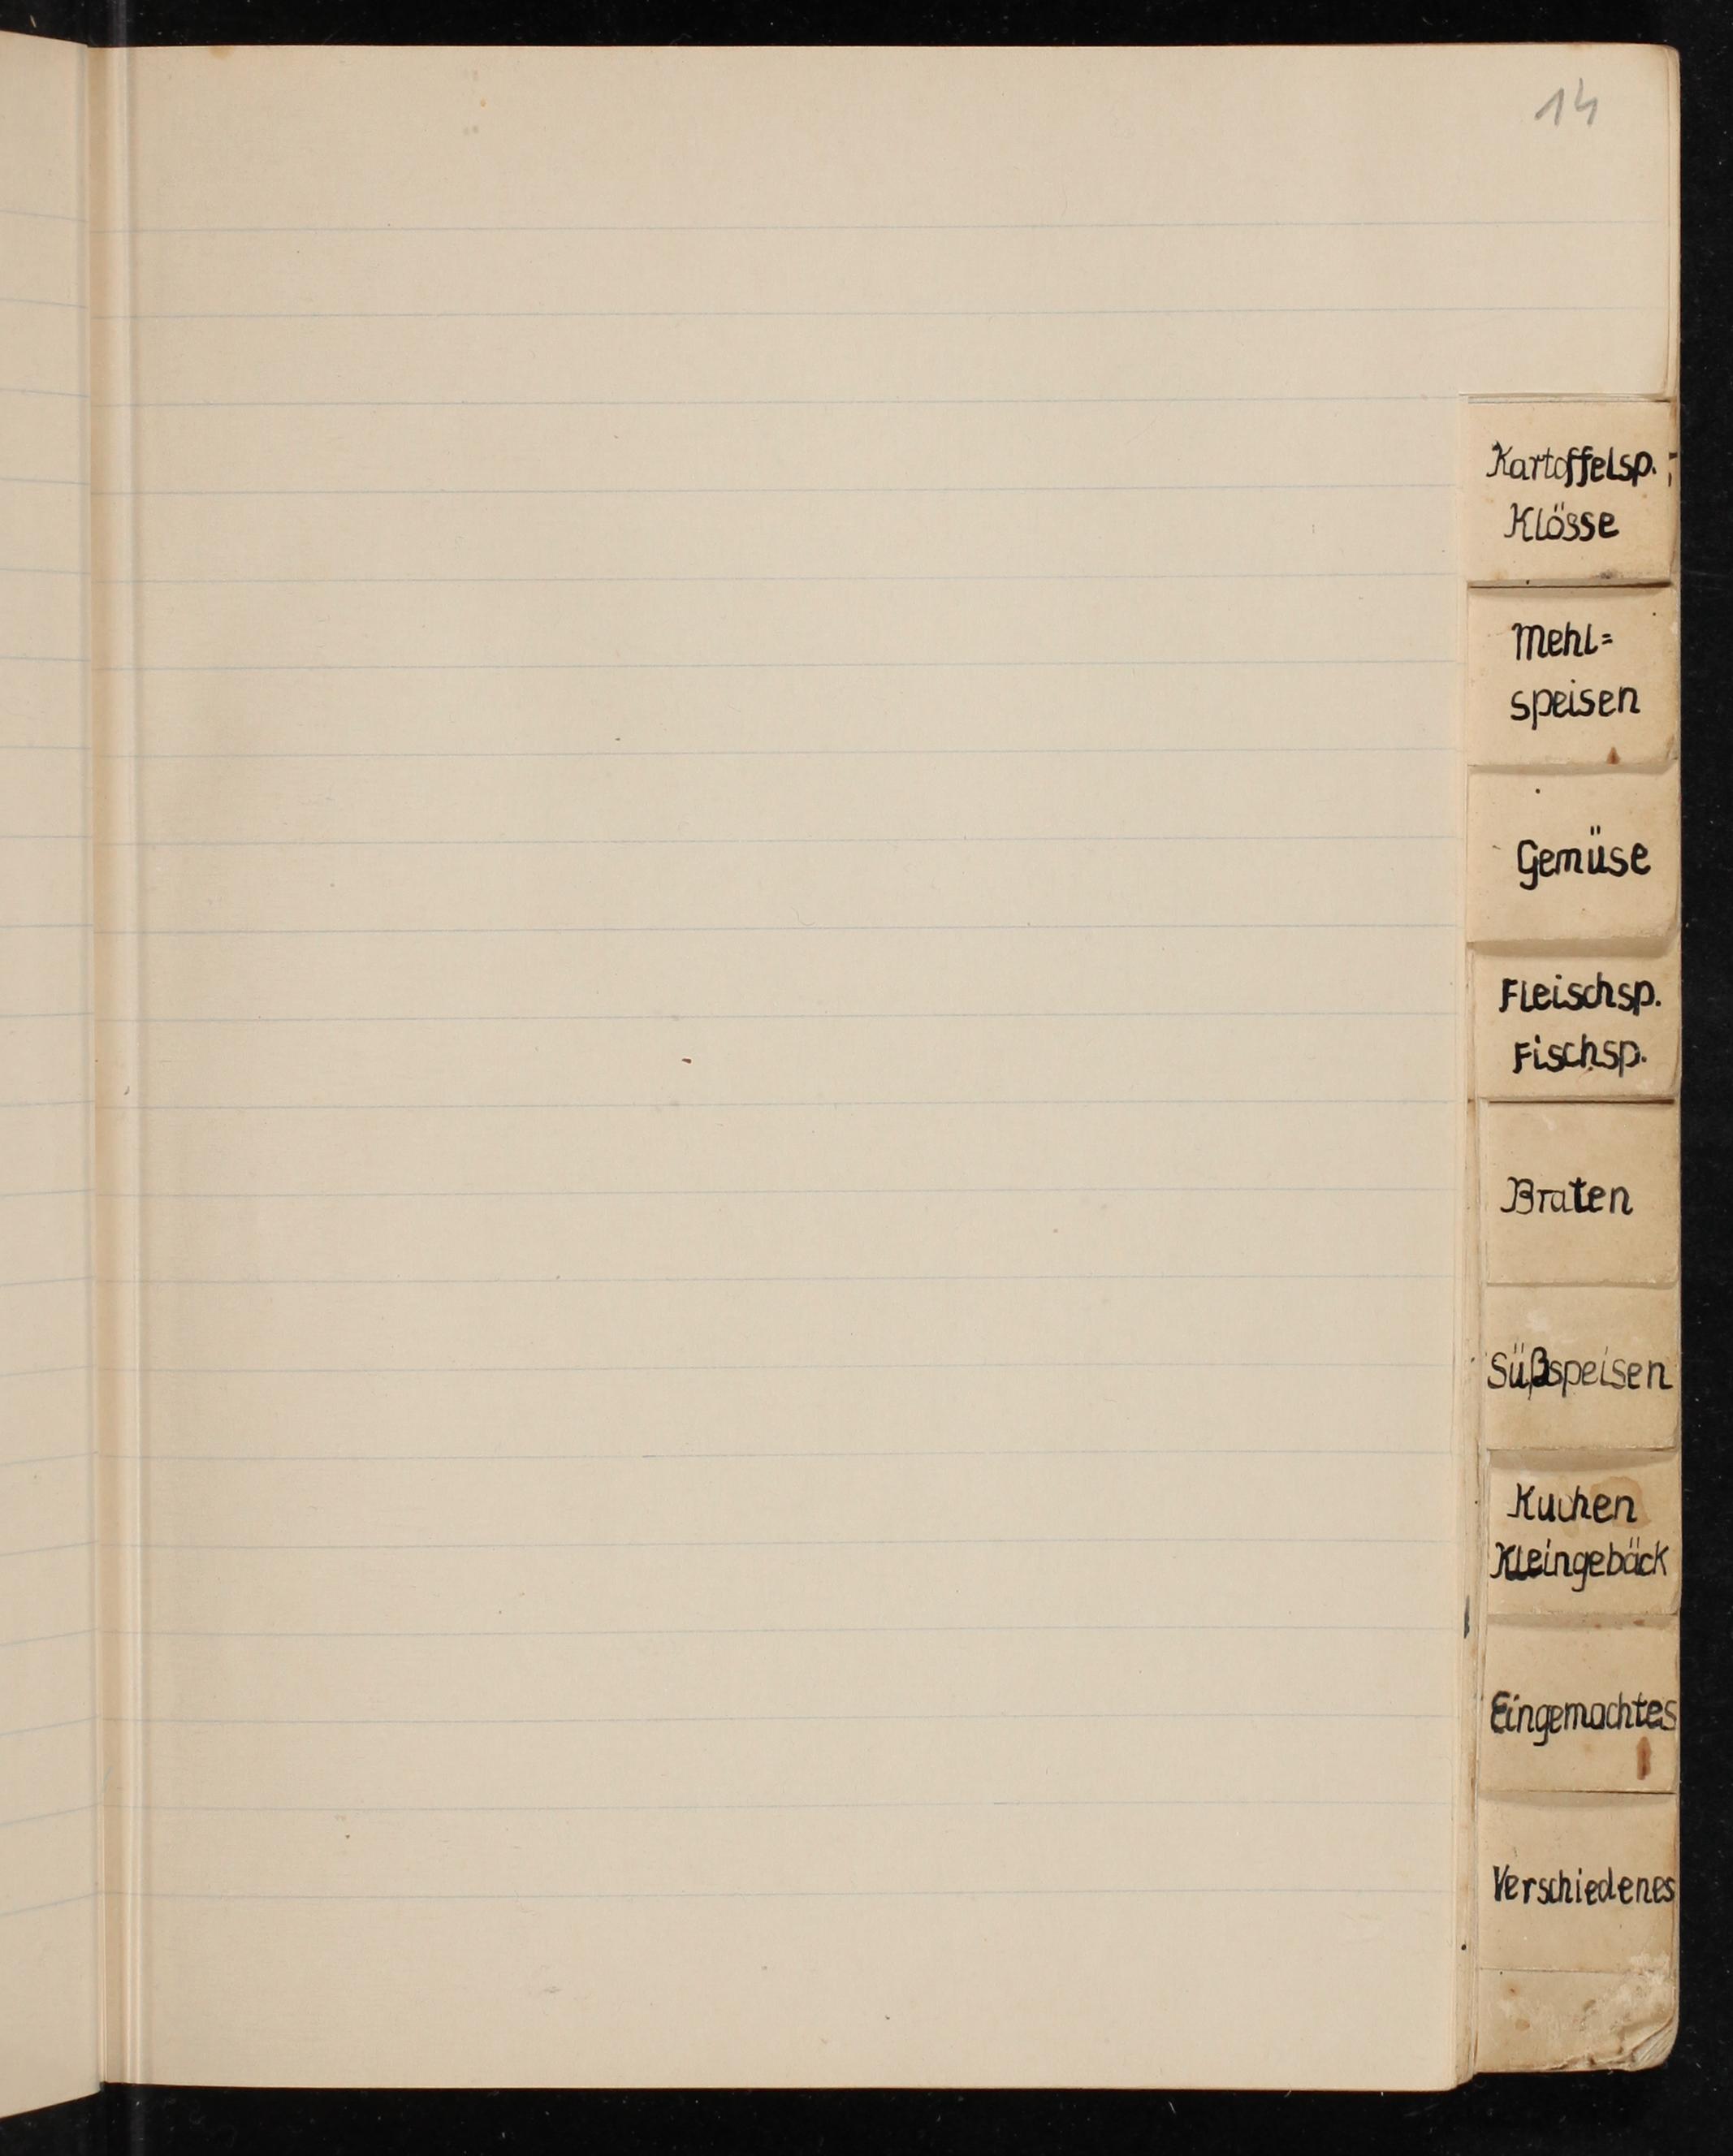 14
Kartoffelsp.
Klösse
Mehl=
speisen
Gemüse
Fleischsp.
Fischsp.
Braten
Süßspeisen
Kuchen
Kleingebäck
Eingemachtes
Verschiedenes